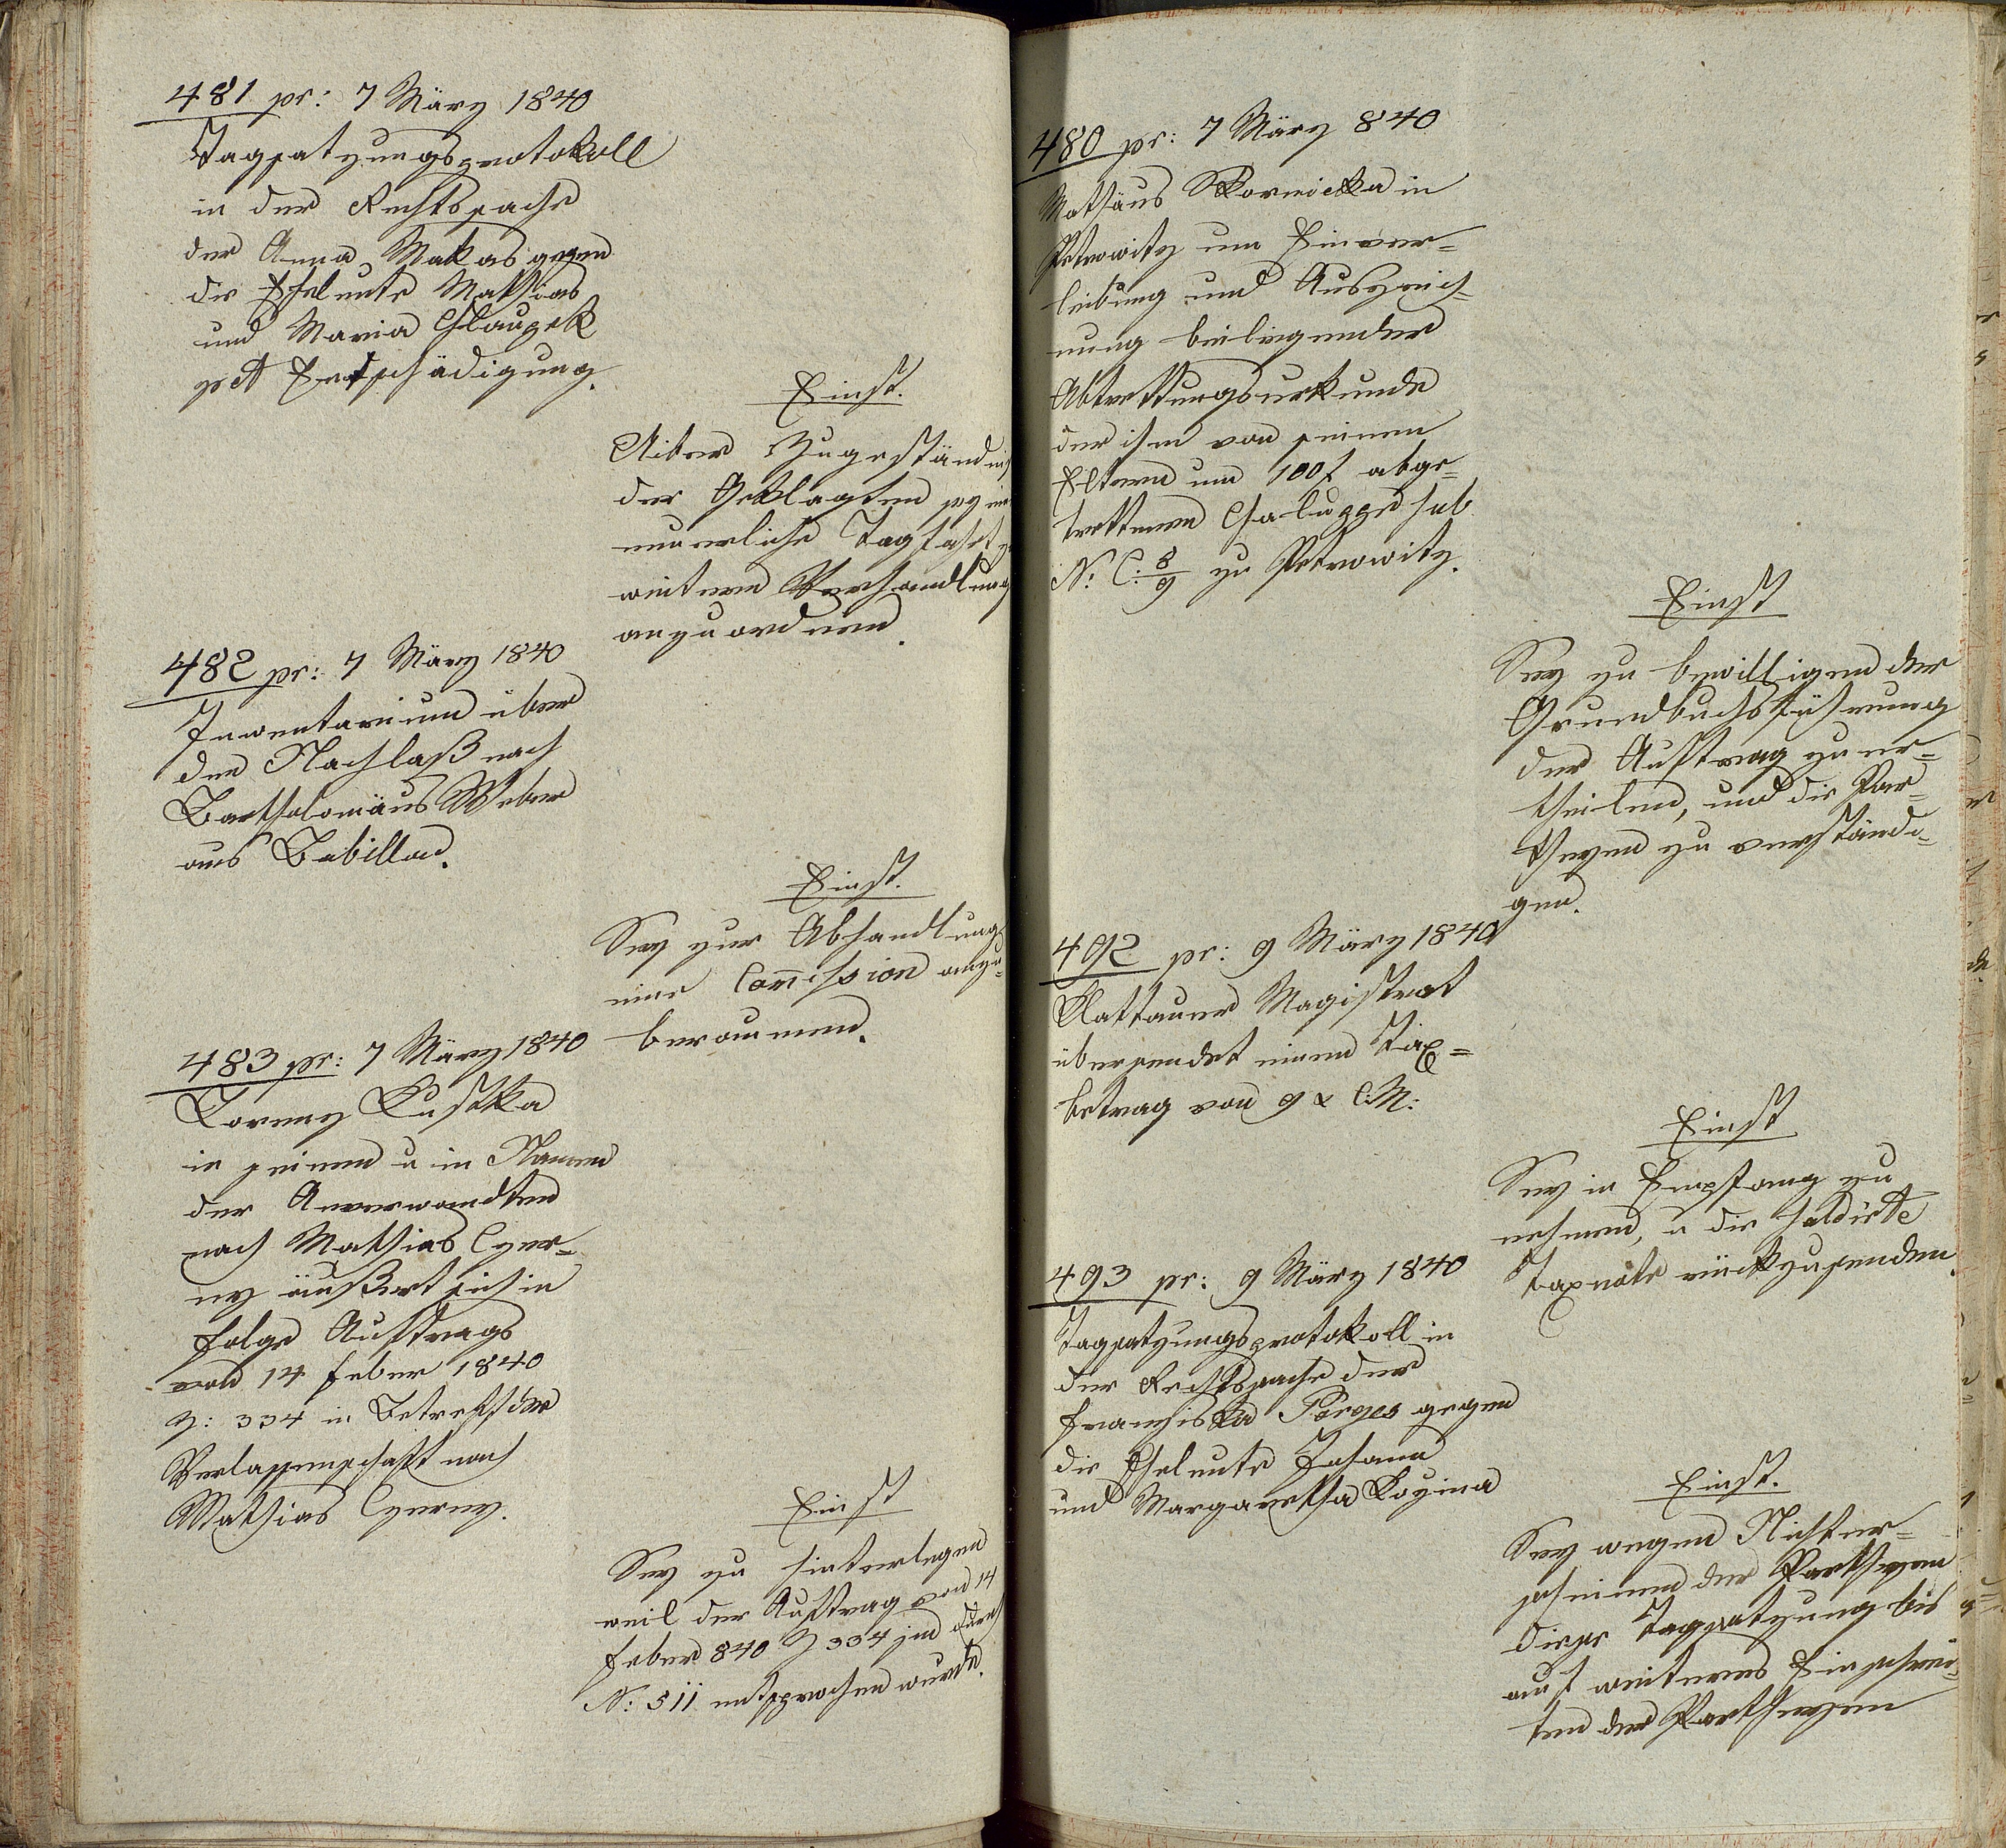 481 pr: 7 März 1840
Tagsatzungsprotokoll
in der Rechtssache
der Anna Makas gegen
die Eheleute Mathias
und Maria Chlaupek
pct Entschädigung.
Einst.
Uiber Zugeständniß
der Geklagten sey ein
neuerliche Tagfahrt zu
weitern Verhandlung
anzuordnen.
482 pr: 7 März 1840
Inventarium über
den Nachlaß nach
Bartholomäus Weber
aus Babillon.
Einst.
Sey zur Abhandlung
eine Com̄ission anzu-
beraumen.
483 pr: 7 März 1840
Lorenz Kustka
in seinem u im Namen
der Anverwandten
nach Mathias Czer-
ny äußert sich in
Folge Auftrags
von 14 Feber 1840
Z: 334 in Betreff der
Verlassenschaft nach
Mathias Czerny.
Einst
Sey zu hinterlegen
weil der Auftrag von 14
Feber 840 Z 334 durch
N: 511 entsprochen wurde.
480 pr: 7 März 840
Mathäus Skornicka in
Petrowitz um Einver=
leibung und Auszeich=
nung beiliegender
Abtrettungsurkunde
der ihm von seinen
Eltern um 100 f abge-
trettenen Chaluppe sub
N: C: 8/9 zu Petrowitz.
Einst
Sey zu bewilligen der
Grundbuchsführung
der Auftrag zu er=
theilen, und die Par=
theyen zu verständi=
gen.
492 pr: 9 März 1840
Klattauer Magistrat
übersendet einen Tax=
betrag von 9 x C:M:
Einst
Sey in Empfang zu
nehmen, u die saldirte
Taxnote rückzusenden.
493 pr: 9 März 1840
Tagsatzungsprotokoll in
der Rechtssache der
Franziska Porges gegen
die Eheleute Johann
und Margaretha Kozina
Einst.
Sey wegen Nichter=
scheinen der Partheyen
diese Tagsatzung bis
auf weiteres Einschrei=
ten der Partheyen